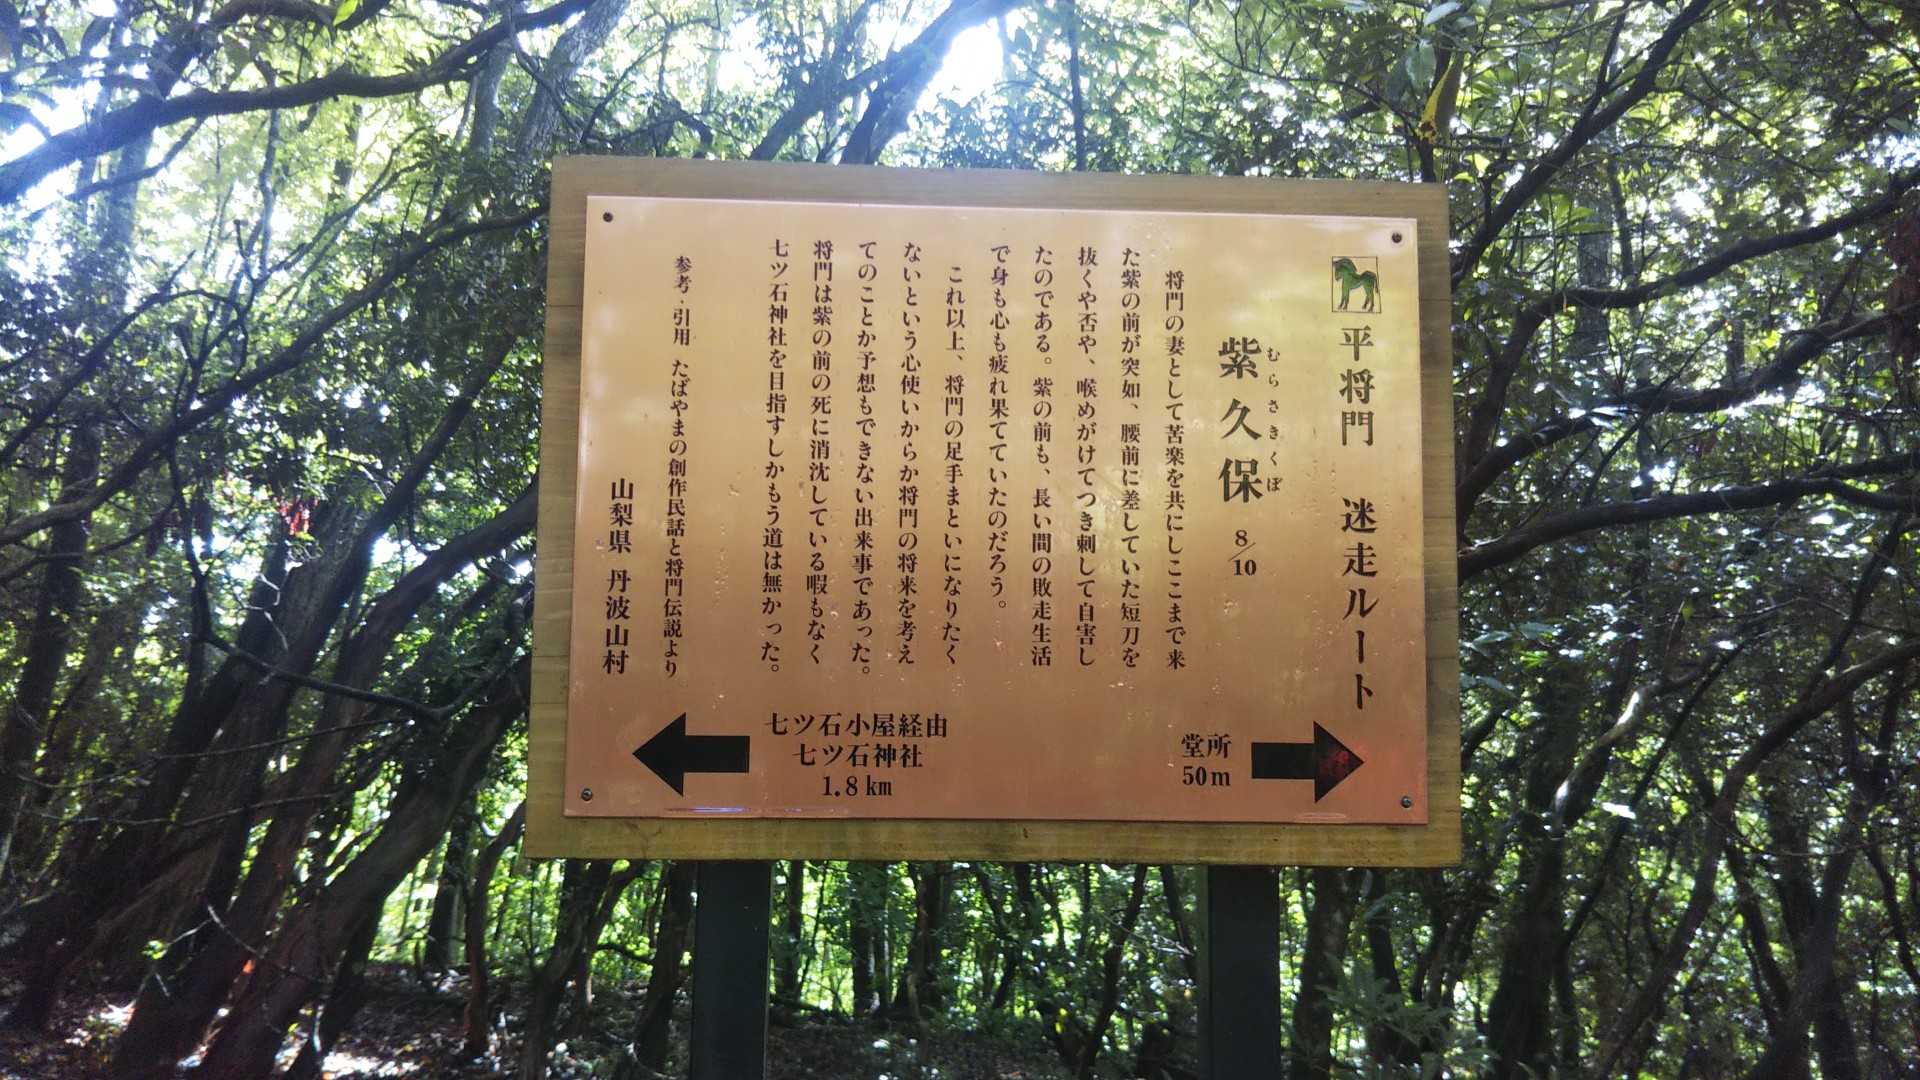 平将門 迷走ルート
紫久保 8/10
むらさきくぼ
将門の妻として苦楽を共にしここまで来
た紫の前が突如、腰前に差していた短刀を
抜くや否や、喉めがけてつき刺して自害し
たのである。紫の前も、長い間の敗走生活
で身も心も疲れ果てていたのだろう。
これ以上、将門の足手まといになりたく
ないという心使いからか将門の将来を考え
てのことか予想もできない出来事であった。
将門は紫の前の死に消沈している暇もなく
七ツ石神社を目指すしかもう道は無かった。
参考・引用 たばやまの創作民話と将門伝説より
山梨県 丹波山村
七ツ石小屋経由
七ツ石神社
1.8km
堂所
50m